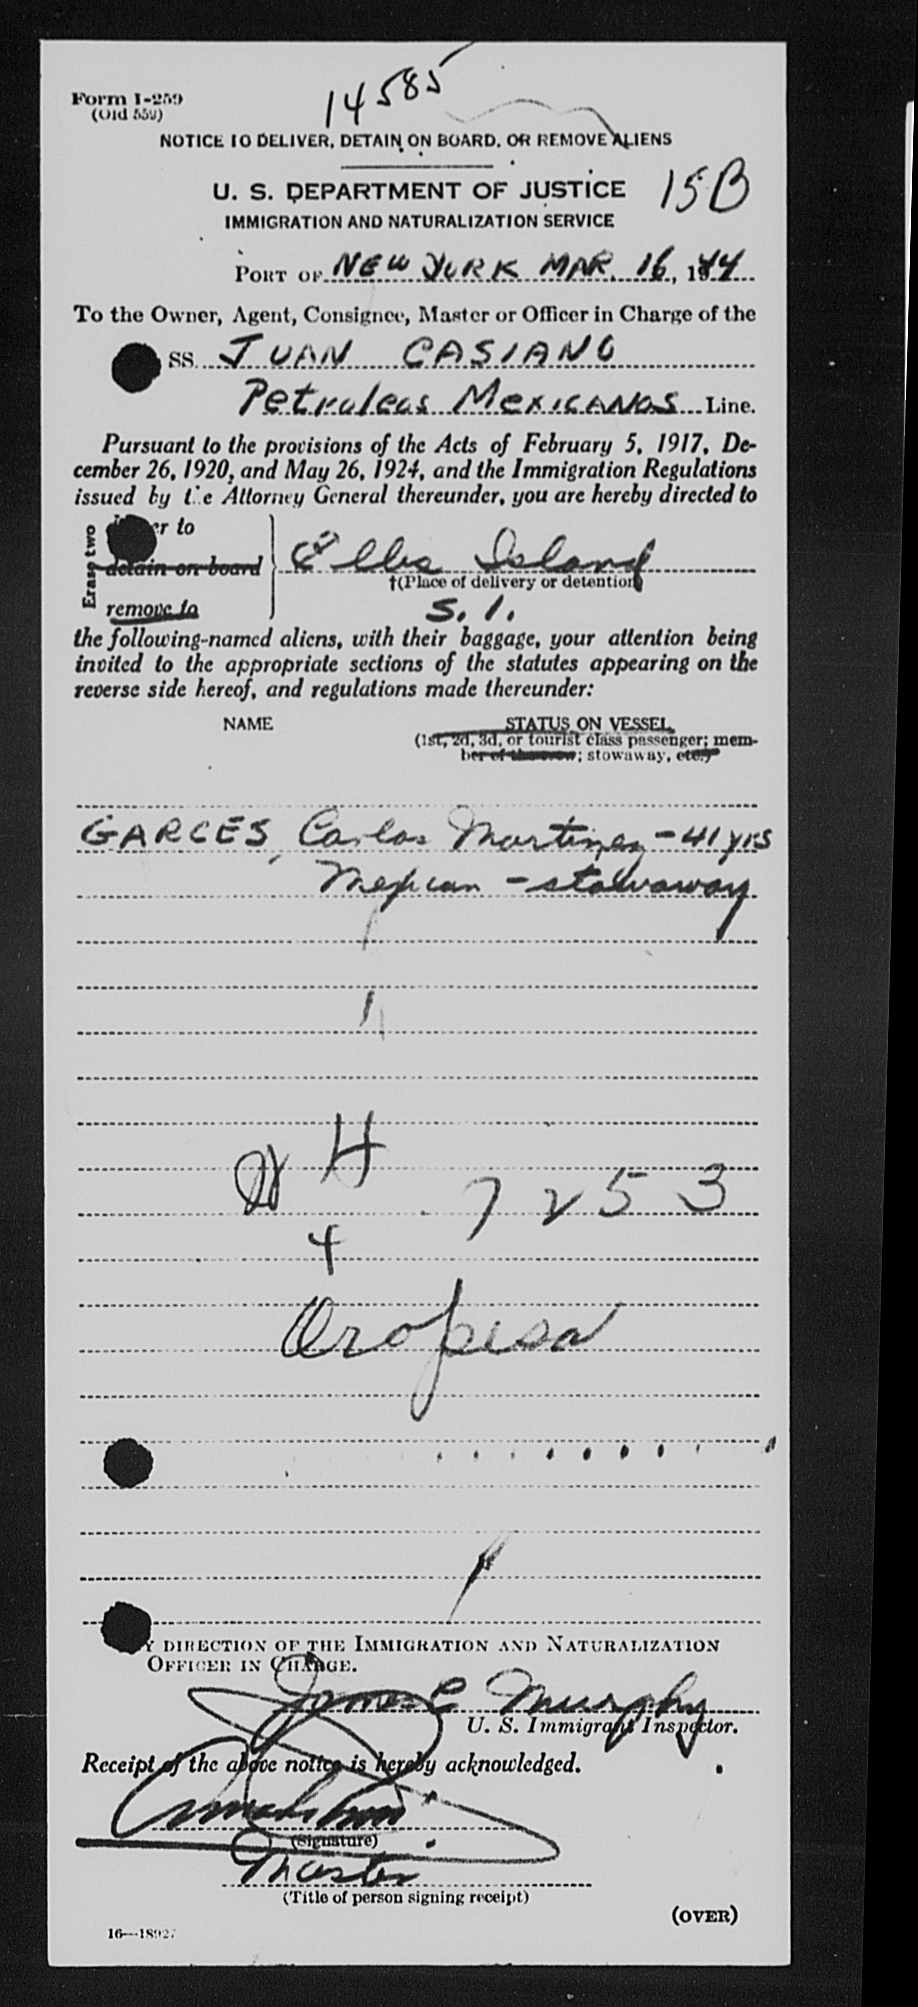 14585
Form I-259
(Old 559)
NOTICE TO DELIVER, DETAIN ON BOARD, OR REMOVE ALIENS
U. S. DEPARTMENT OF JUSTICE
15B
IMMIGRATION AND NATURALIZATION SERVICE
PORT OF NEW YORK MAR. 16, 1944
To the Owner, Agent, Consignee, Master or Officer in Charge of the
SS. JUAN CASIANO
Petroleos MEXICANOS Line.
Pursuant to the provisions of the Acts of February 5, 1917, De-
cember 26, 1920, and May 26, 1924, and the Immigration Regulations
issued by the Attorney General thereunder, you are hereby directed to
Erase two
to
detain on board
Ellis Island
†(Place of delivery or detention)
remove to
S. I.
the following-named aliens, with their baggage, your attention being
invited to the appropriate sections of the statutes appearing on the
reverse side hereof, and regulations made thereunder:
NAME STATUS ON VESSEL
(1st, 2d, 3d, or tourist class passenger; mem-
ber of the crew; stowaway, etc.)
GARCES, Carlos Martinez - 41 yrs
Mexican - stowaway
4
7253
4
Oropesa
BY DIRECTION OF THE IMMIGRATION AND NATURALIZATION
OFFICER IN CHARGE.
James C Murphy
U. S. Immigrant Inspector.
Receipt of the above notice is hereby acknowledged.
(Signature)
Master
(Title of person signing receipt)
(OVER)